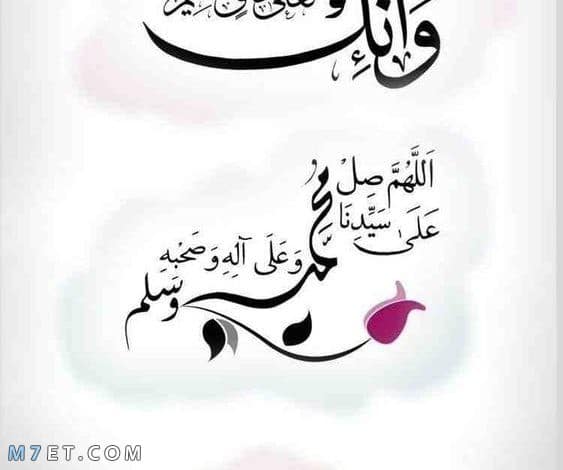 وَإِنَّكَ
اَللَّهُمَّ صِلْ
عَلَىٰ سَيِّدِنَا
محمد
وَعَلَى آلِهِ وَصَحْبِهِ
وَسَلِّم
M7ET.COM